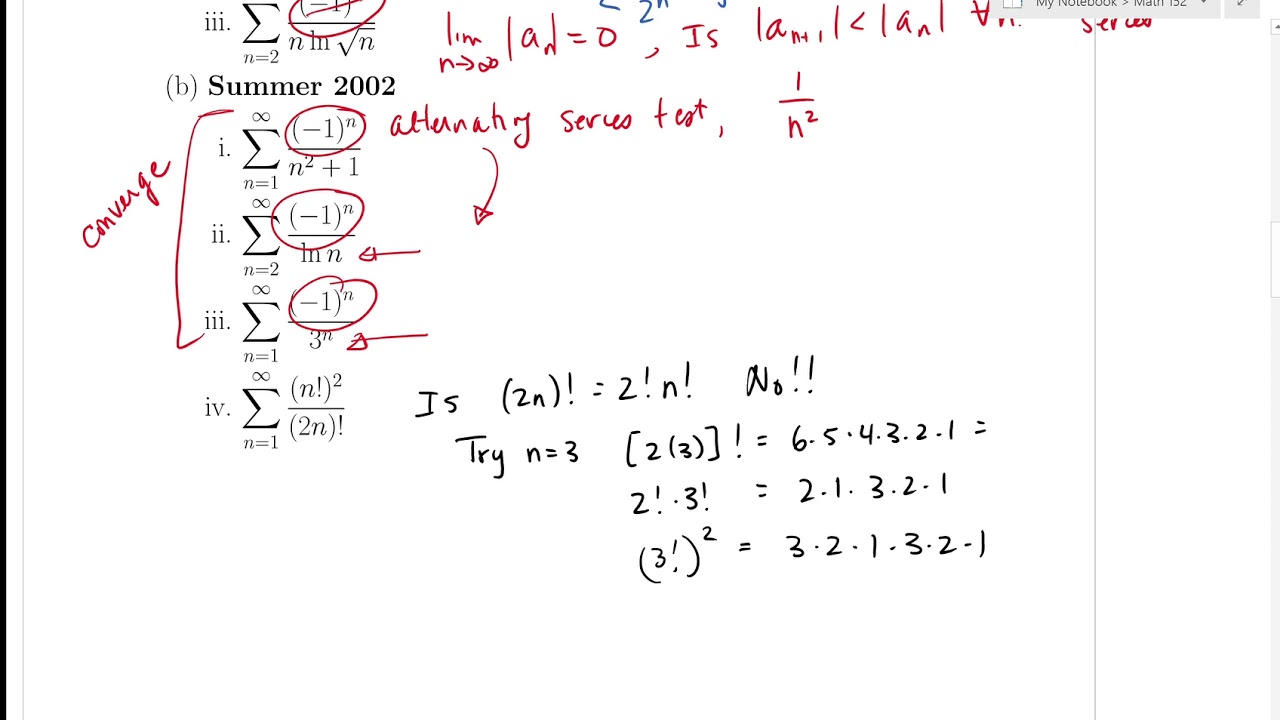 My Notebook > Math 152
iii. ∑_{n=2} (−1) / (n ln √n)
2ⁿ
lim_{n→∞} |aₙ| = 0 , Is |aₙ₊₁| < |aₙ| ∀n. series
(b) Summer 2002
i. ∑_{n=1}^{∞} (−1)ⁿ / (n² + 1) alternating series test, 1/n²
converge
ii. ∑_{n=2}^{∞} (−1)ⁿ / ln n
iii. ∑_{n=1}^{∞} (−1)ⁿ / 3ⁿ
iv. ∑_{n=1}^{∞} (n!)² / (2n)! Is (2n)! = 2! n! No!!
Try n=3 [2(3)]! = 6·5·4·3·2·1 =
2!·3! = 2·1·3·2·1
(3!)² = 3·2·1·3·2·1